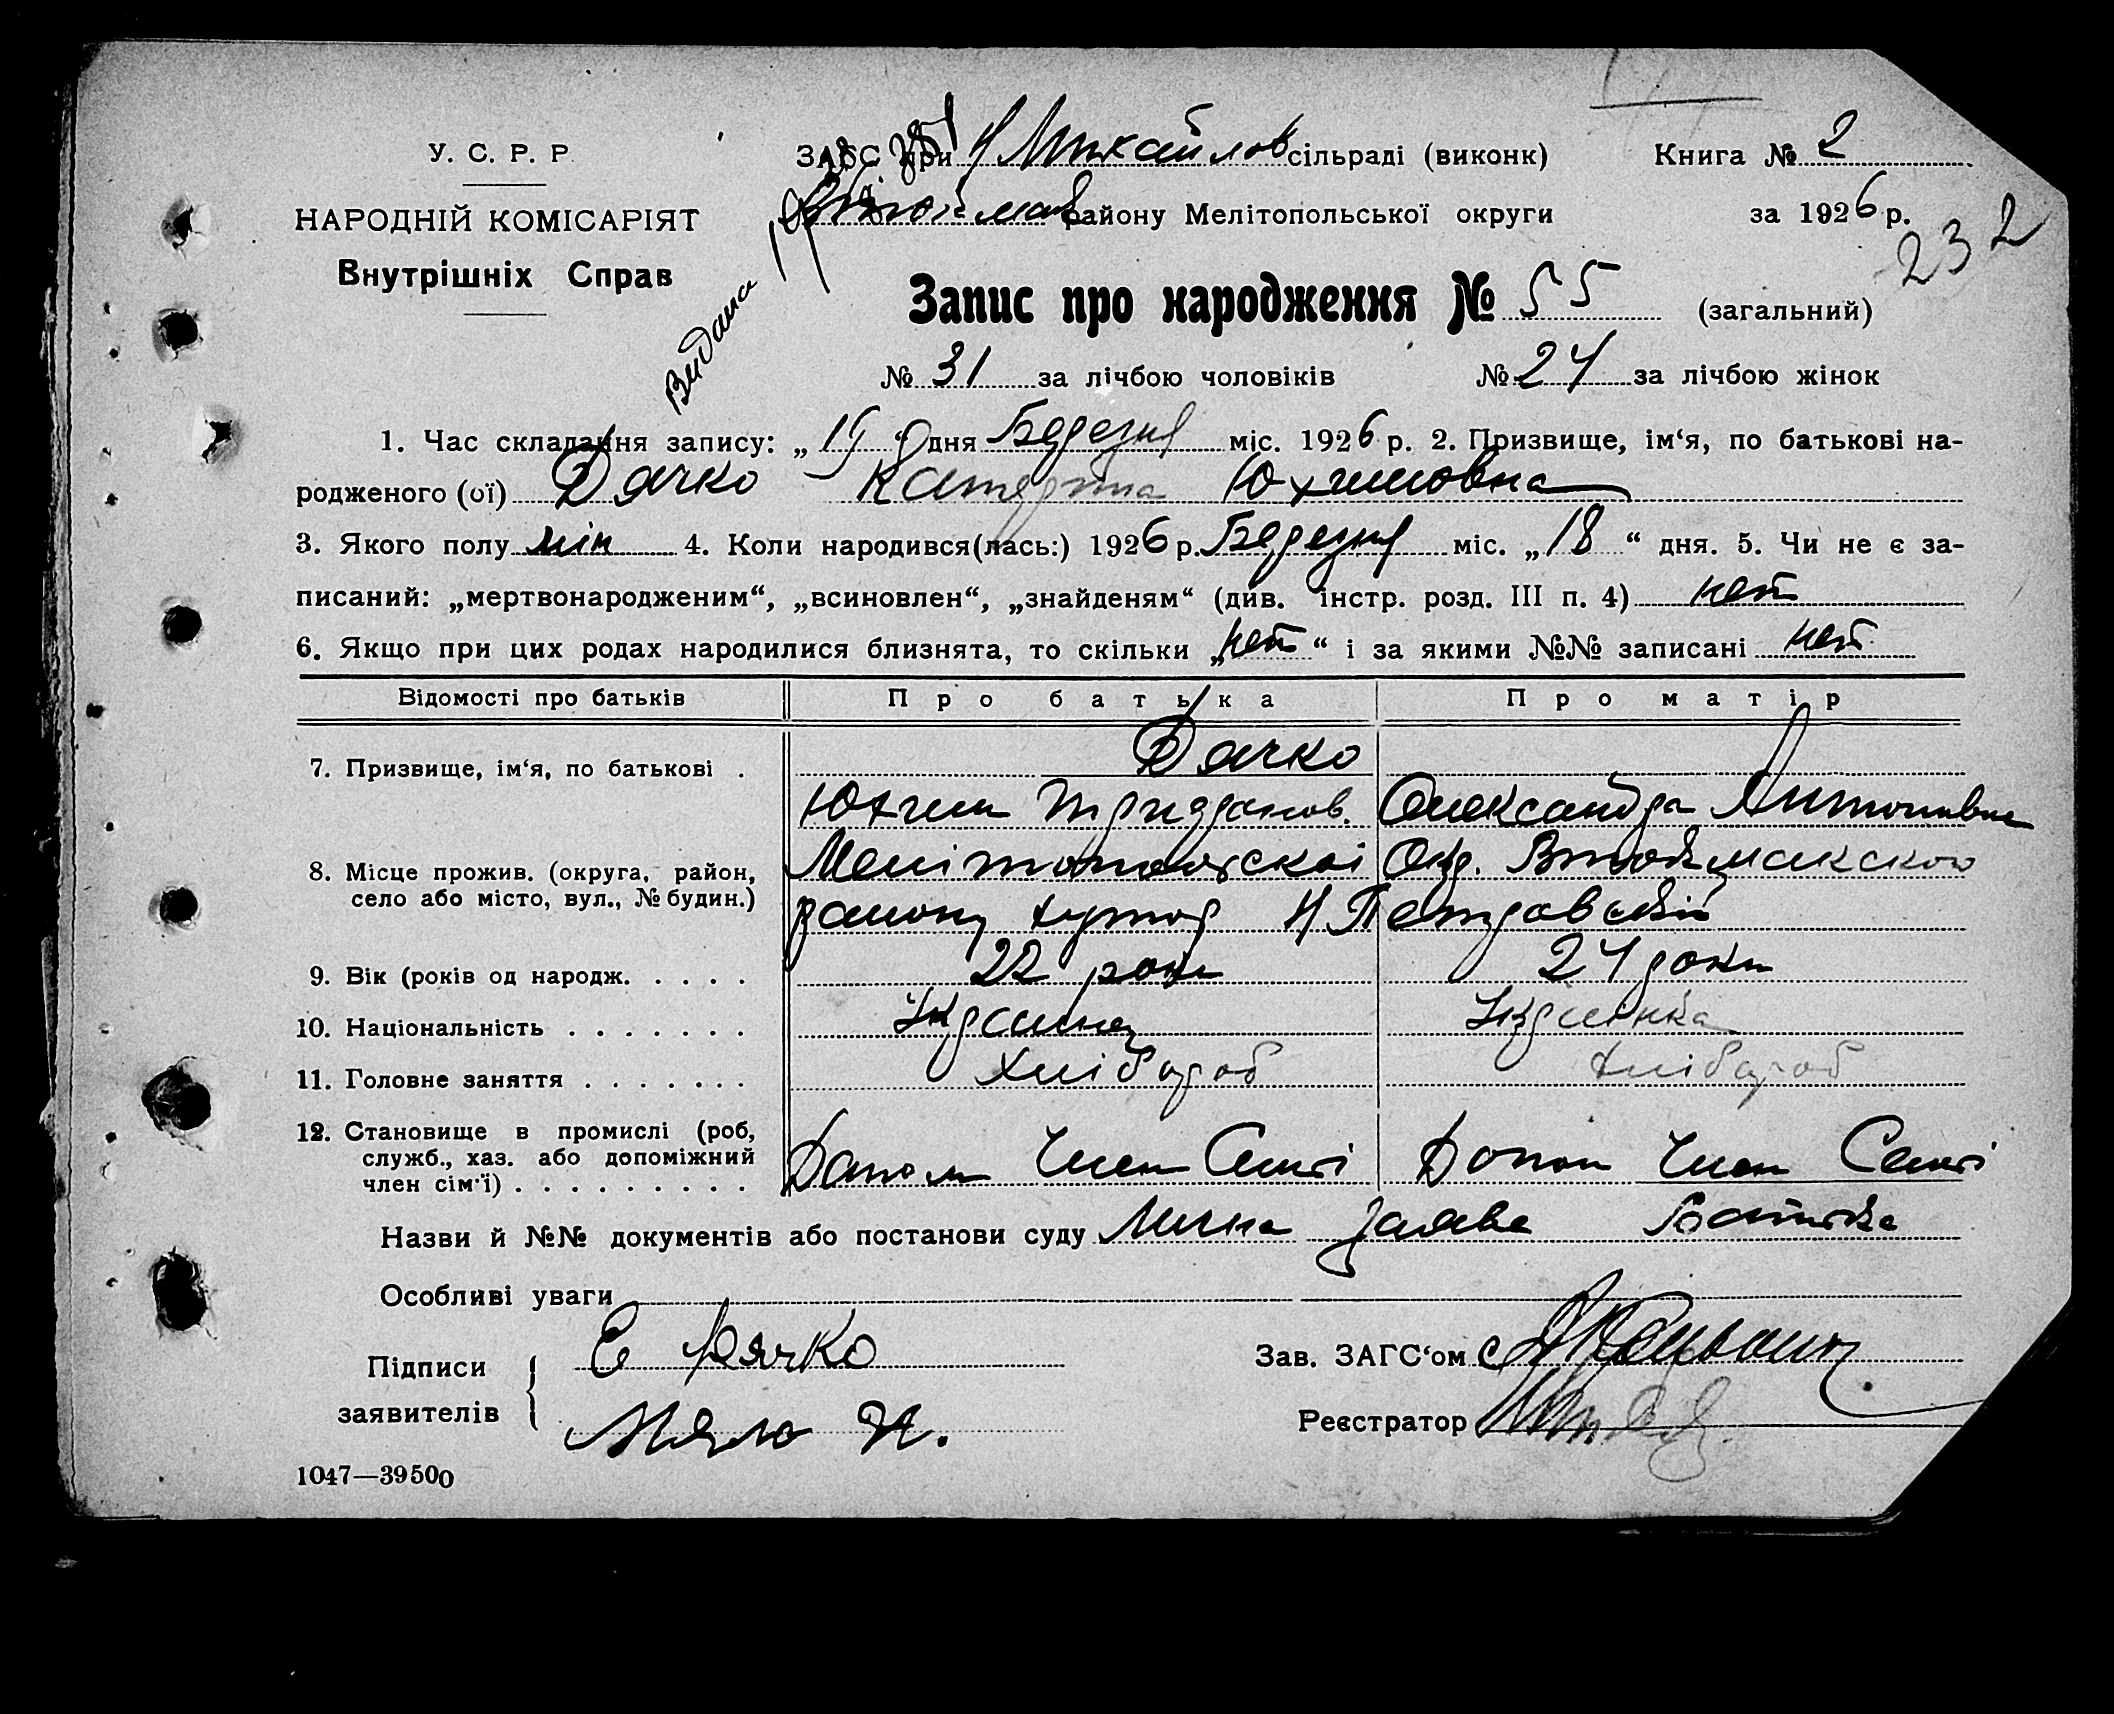 У. С. Р. Р.
НАРОДНІЙ КОМІСАРІЯТ
Внутрішніх Справ
ЗАГС при Н Михайлов сільраді (виконк)
Втокмак району Мелітопольської округи
Книга № 2
за 1926 р.
232
Видана
Запис про народження № 55 (загальний)
№ 31 за лічбою чоловіків № 24 за лічбою жінок
1. Час складання запису: „19“ дня Березня міс. 1926 р. 2. Призвище, ім‘я, по батькові на-
родженого (ої) Дячко Катерина Юхимовна
3. Якого полу жін 4. Коли народився(лась:) 1926 р. Березня міс. „18“ дня. 5. Чи не є за-
писаний: „мертвонародженим“, „всиновлен“, „знайденям“ (див. інстр. розд. III п. 4) нет
6. Якщо при цих родах народилися близнята, то скільки „нет“ і за якими №№ записані нет
Відомості про батьків Про батька Про матір
7. Призвище, ім‘я, по батькові . Дячко
Юхим Олександра Антонивна
8. Місце прожив. (округа, район, село або місто, вул., № будин.) Мелітопольскоі Окр. Втокмакского
району хутор Н Петровский
9. Вік (років од народж. . . . . 22 роки 24 роки
10. Національність . . . . . . . Украинец Украінка
11. Головне заняття . . . . . . . Хлібороб Хлібороб
12. Становище в промислі (роб, служб., хаз. або допоміжний член сім‘ї) . . . . . . . . . Допом Член Семі Допом Член Семі
Назви й №№ документів або постанови суду Лична заява Батька
Особливі уваги
Підписи заявителів Е Дячко
Мяло Н.
Зав. ЗАГС‘ом
Реєстратор
1047—39500